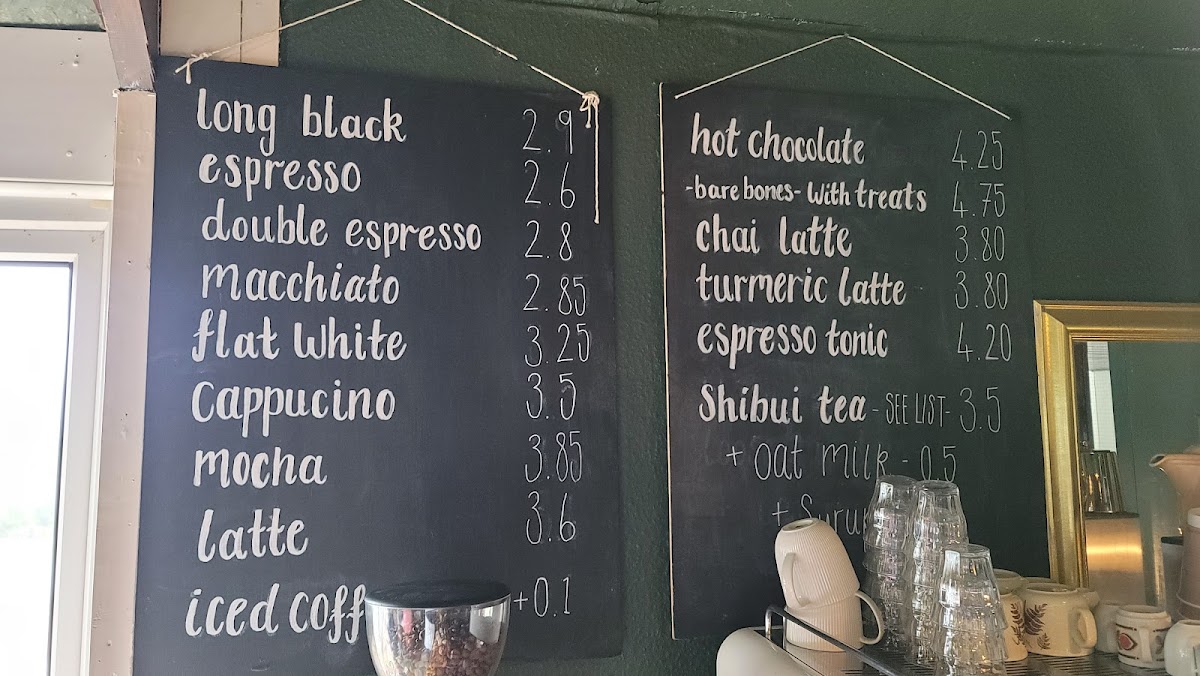 long black 2.9
espresso 2.6
double espresso 2.8
macchiato 2.85
flat White 3.25
Cappucino 3.5
mocha 3.85
latte 3.6
iced +0.1
hot chocolate 4.25
-bare bones- With treats 4.75
chai latte 3.80
turmeric latte 3.80
espresso tonic 4.20
Shibui tea - SEE LIST- 3.5
+ oat milk - 0.5
+